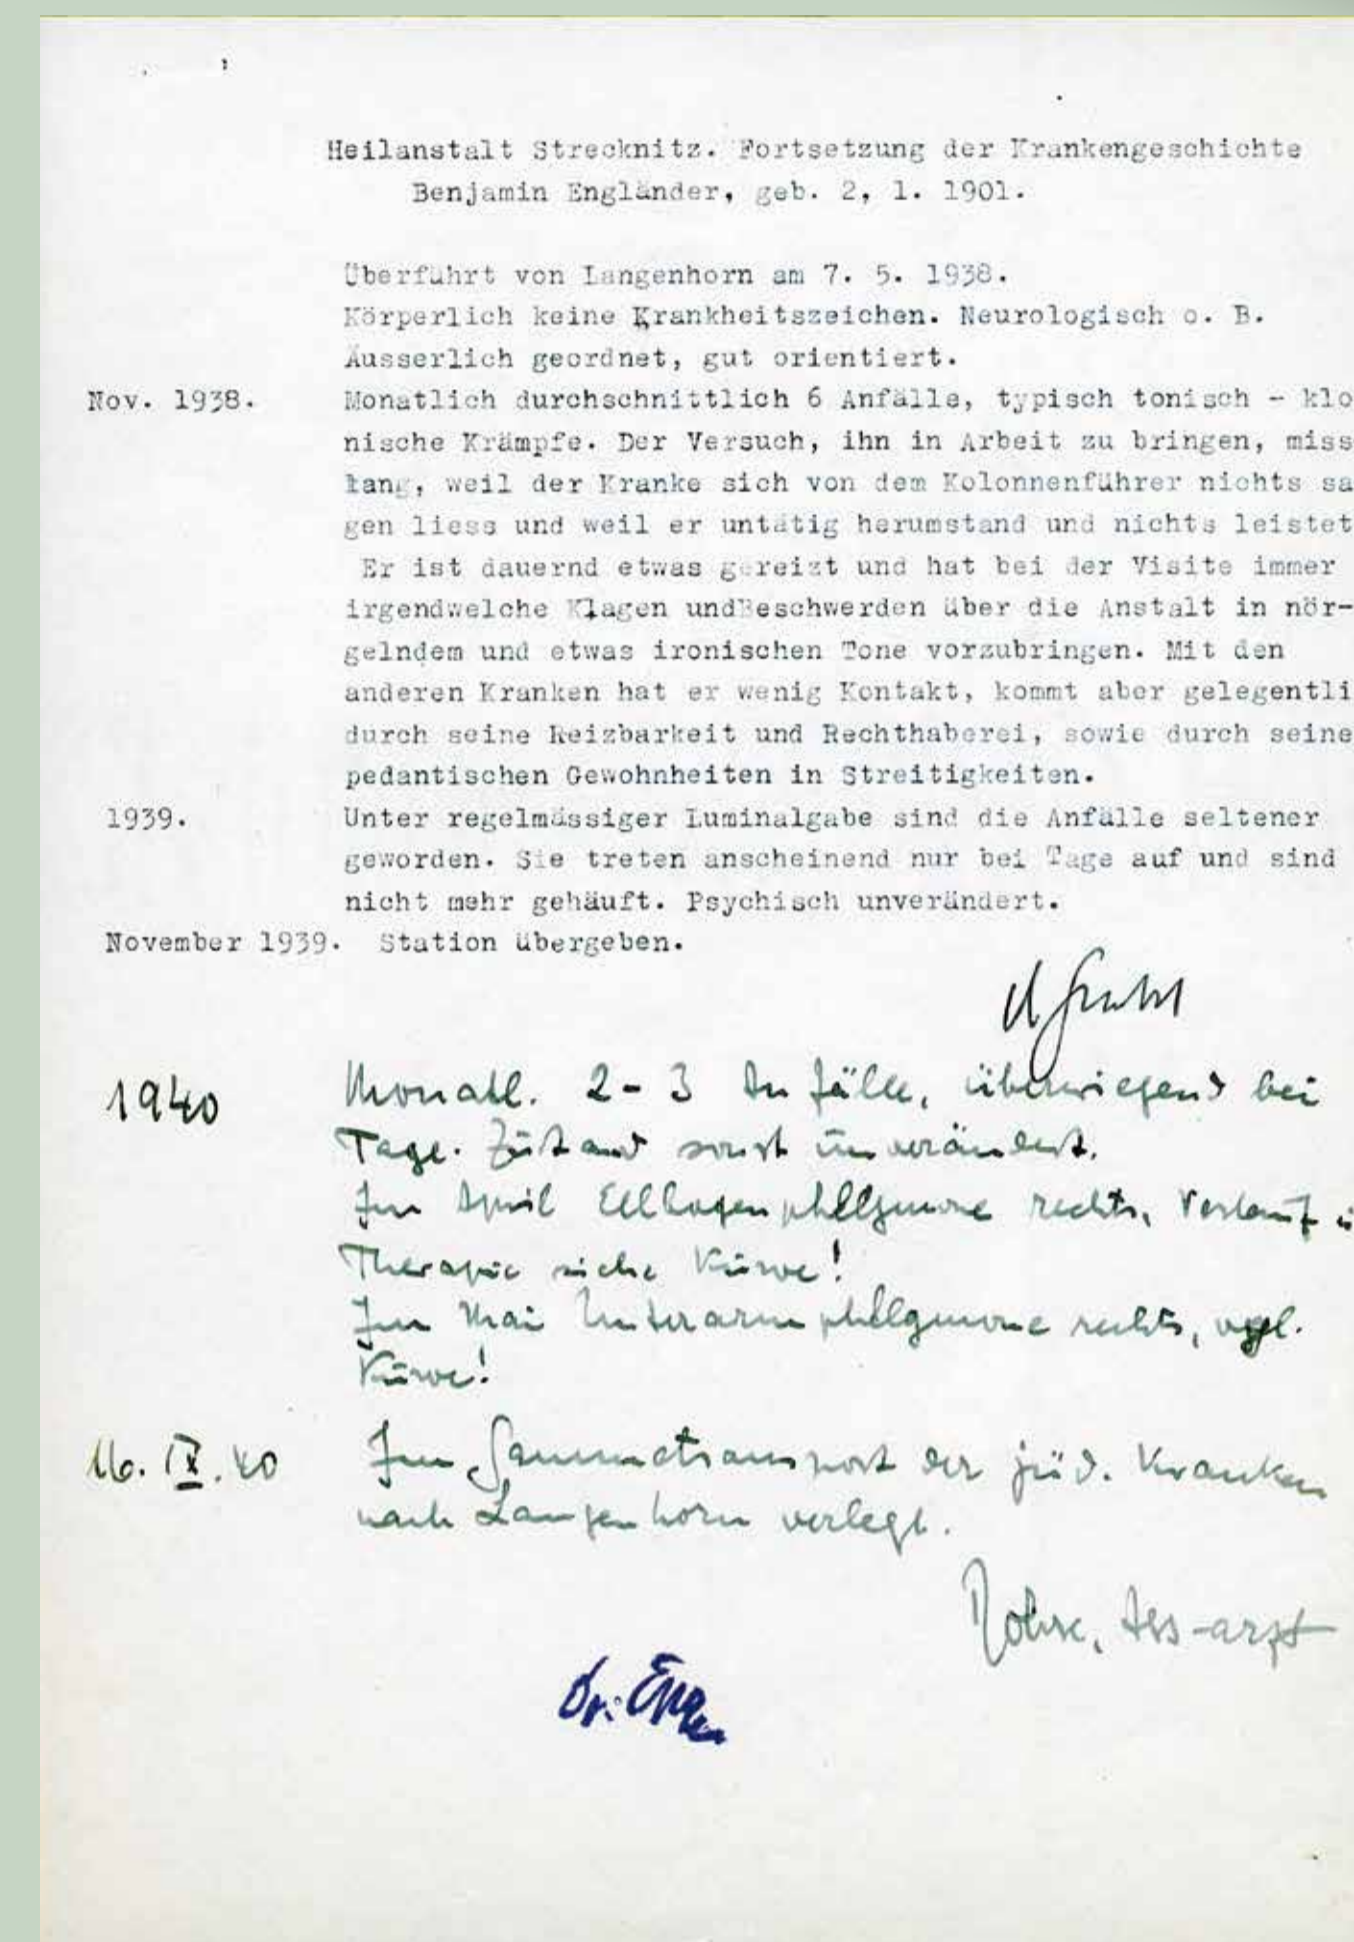 Heilanstalt Strecknitz. Fortsetzung der Krankengeschichte
Benjamin Engländer, geb. 2, 1. 1901.
Überführt von Langenhorn am 7. 5. 1938.
Körperlich keine Krankheitszeichen. Neurologisch o. B.
Äusserlich geordnet, gut orientiert.
Nov. 1938. Monatlich durchschnittlich 6 Anfälle, typisch tonisch - klo
nische Krämpfe. Der Versuch, ihn in Arbeit zu bringen, miss
lang, weil der Kranke sich von dem Kolonnenführer nichts sa
gen liess und weil er untätig herumstand und nichts leistet
Er ist dauernd etwas gereizt und hat bei der Visite immer
irgendwelche Klagen undBeschwerden über die Anstalt in nör-
gelndem und etwas ironischen Tone vorzubringen. Mit den
anderen Kranken hat er wenig Kontakt, kommt aber gelegentli
durch seine Reizbarkeit und Rechthaberei, sowie durch seine
pedantischen Gewohnheiten in Streitigkeiten.
1939. Unter regelmässiger Luminalgabe sind die Anfälle seltener
geworden. Sie treten anscheinend nur bei Tage auf und sind
nicht mehr gehäuft. Psychisch unverändert.
November 1939. Station übergeben.
1940 Monatl. 2-3 Anfälle, überwiegend bei
Tage. Zustand sonst unverändert.
Im April Ellbogenphlegmone rechts, Verlauf
Therapie siehe Kurve!
Im Mai Unterarmphlegmone rechts, vgl.
Kurve!
16. IX. 40 Im Sammeltransport der jüd. Kranken
nach Langenhorn verlegt.
Ass-arzt
Dr.